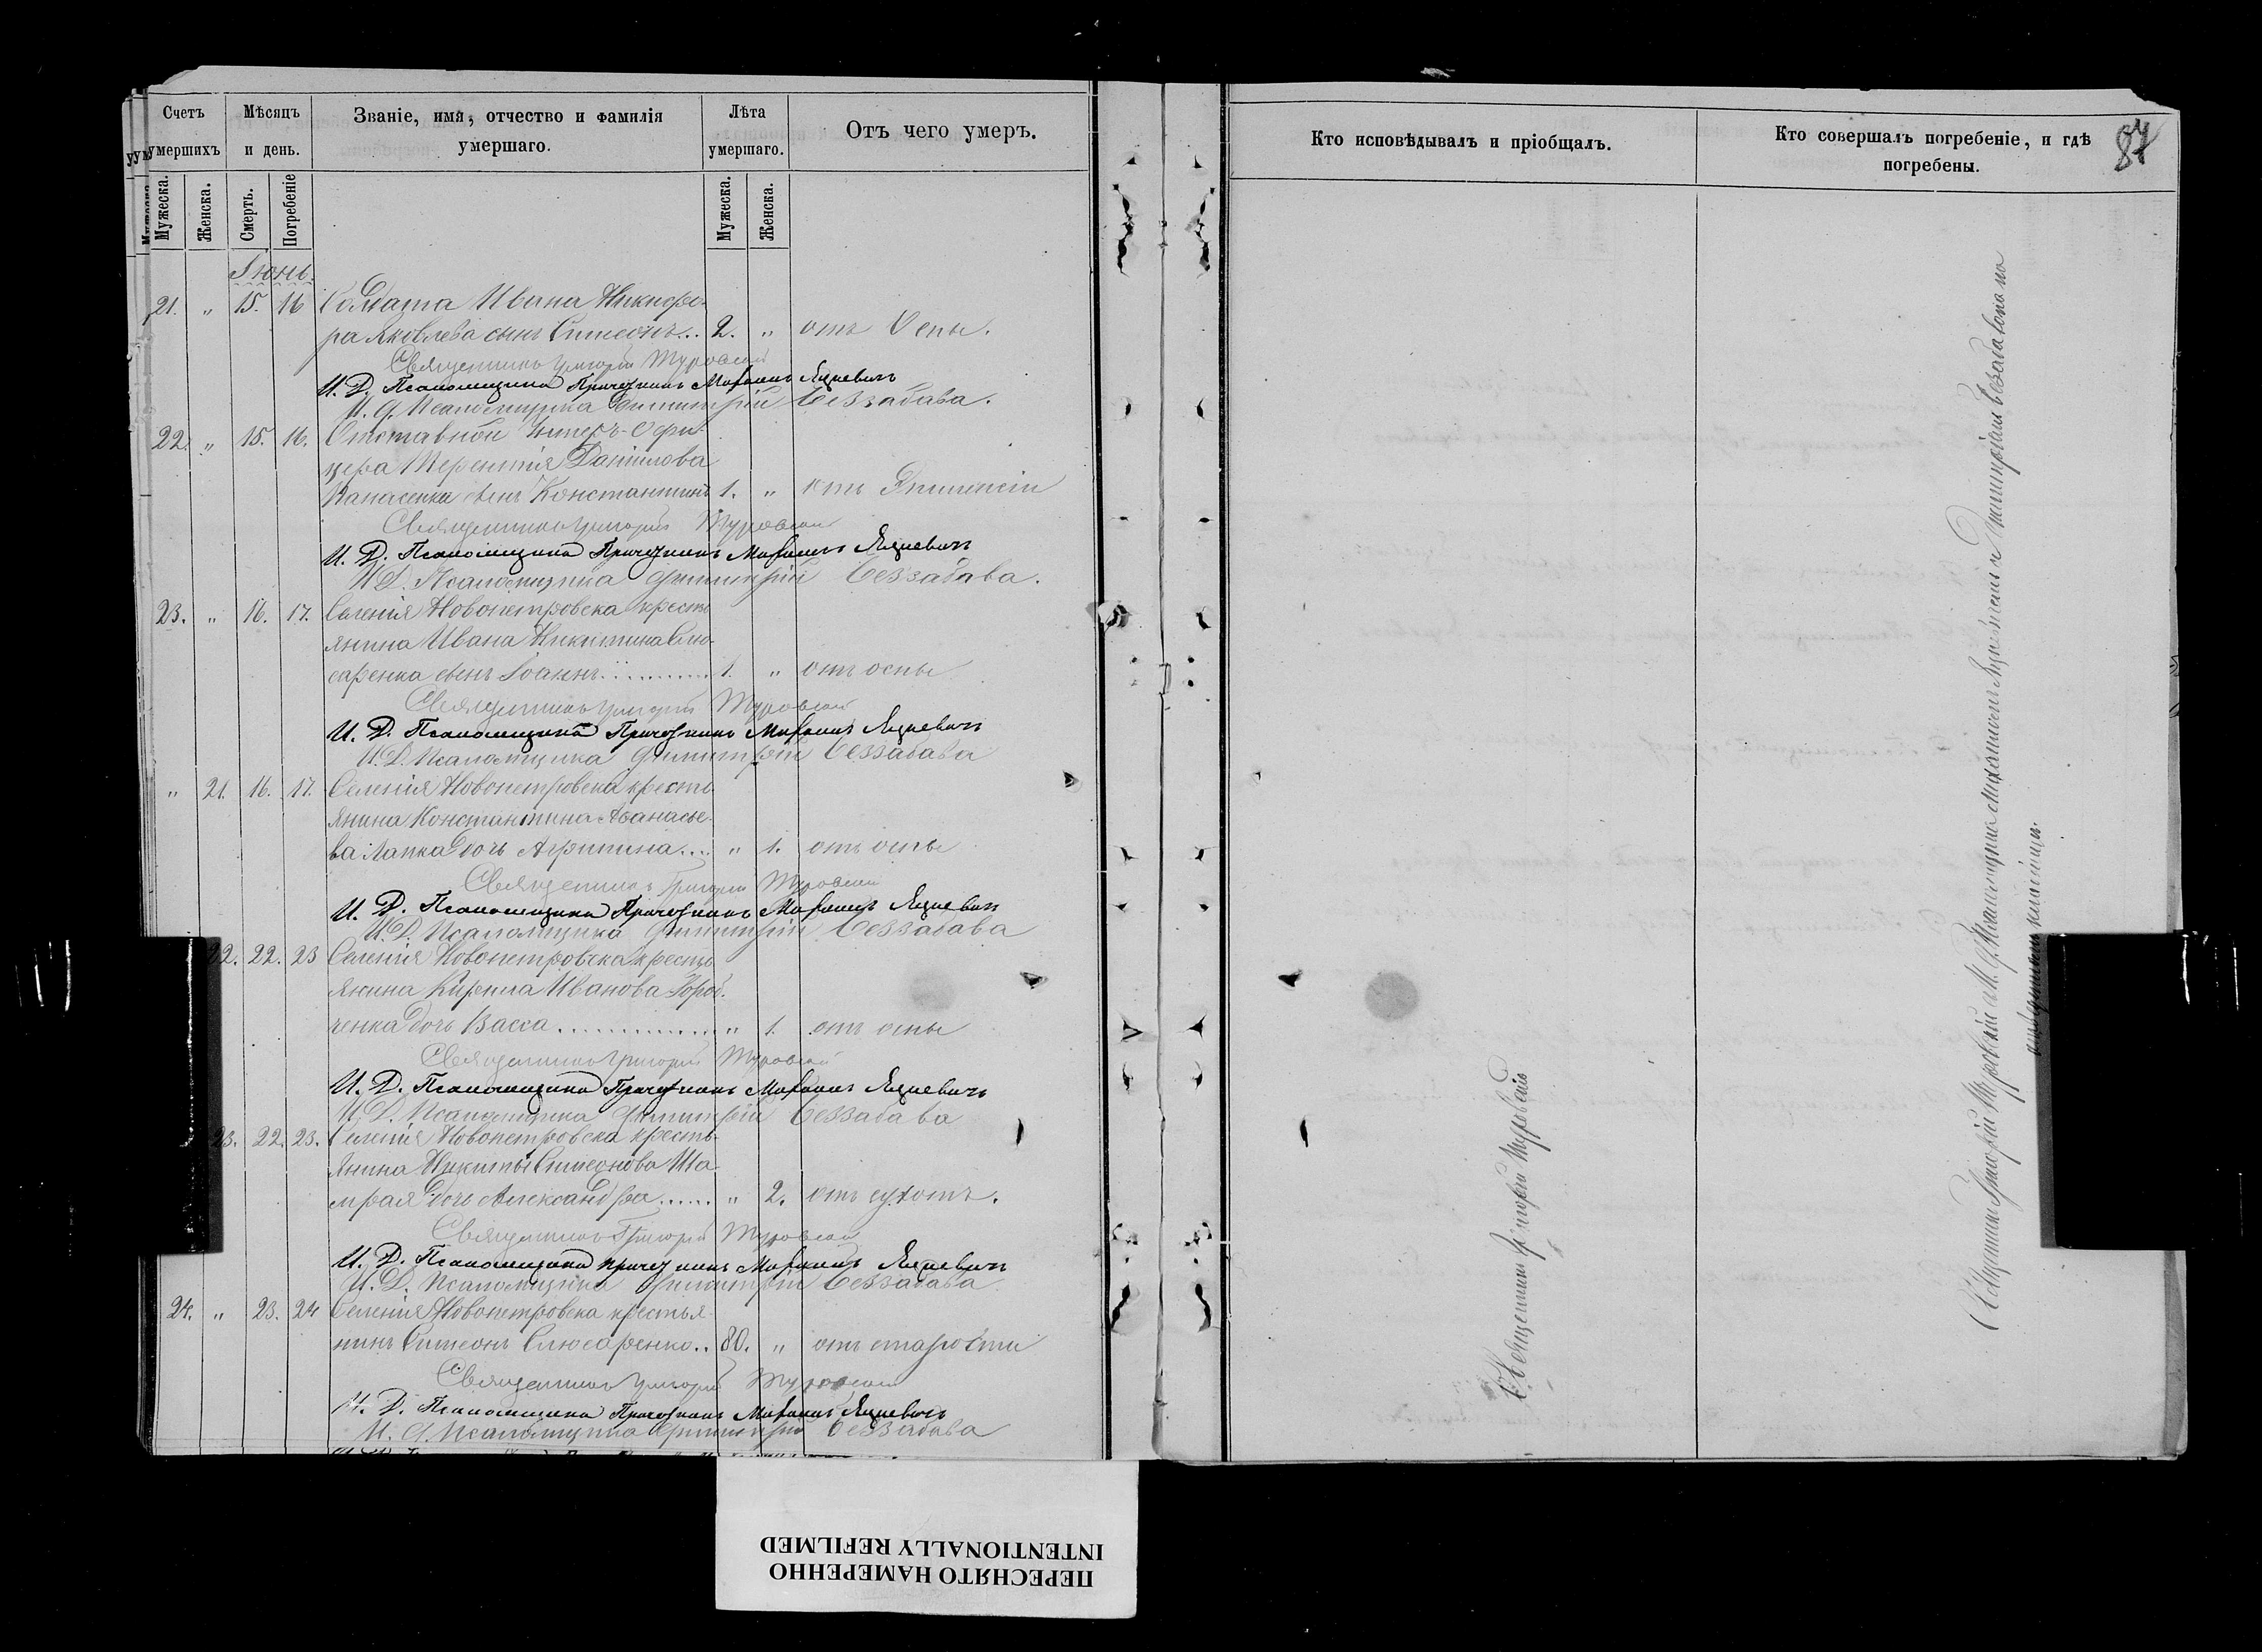 Счетъ умершихъ
Мѣсяцъ и день.
Званіе, имя, отчество и фамилія умершаго.
Лѣта умершаго.
Отъ чего умеръ.
Мужеска.
Женска.
Смерть.
Погребеніе
Мужеска.
Женска.
Іюнь.
21. " 15. 16 Солдата Ивана Никифо-
ра Яковлева сынъ Симеонъ... 2. " отъ Оспы.
Священникъ Григорій Туровскій
И. Д. Псаломщика Причетникъ Михаилъ Яцкевичъ
И. Д. Псаломщика Димитрій Беззабава.
22. " 15. 16. Отставнаго Унтеръ-Офи-
цера Терентія Даніилова
Панасенка сынъ Константинъ 1. " отъ Эпилепсіи
Священникъ Григорій Туровскій
И. Д. Псаломщика Причетникъ Михаилъ Яцкевичъ
И. Д. Псаломщика Димитрій Беззабава.
23. " 16. 17. Селенія Новопетровска кресть
янина Ивана Никитина Слю-
саренка сынъ Іоаннъ............ 1. " отъ оспы
Священникъ Григорій Туровскій
И. Д. Псаломщика Причетникъ Михаилъ Яцкевичъ
И. Д. Псаломщика Димитрій Беззабава
" 21. 16. 17. Селенія Новопетровска кресть-
янина Константина Аѳанасье-
ва Лапка дочь Агрипина.... " 1. отъ оспы
Священникъ Григорій Туровскій
И. Д. Псаломщика Причетникъ Михаилъ Яцкевичъ
И. Д. Псаломщика Димитрій Беззабава
22. 22. 23 Селенія Новопетровска кресть
янина Кирилла Иванова
ченка дочь Васса............... " 1. отъ оспы
Священникъ Григорій Туровскій
И. Д. Псаломщика Причетникъ Михаилъ Яцкевичъ
И. Д. Псаломщика Димитрій Беззабава
23. 22. 23. Селенія Новопетровска кресть-
янина Никиты Симеонова Ша-
мрая дочь Александра...... " 2. отъ сухотъ.
Священникъ Григорій Туровскій
И. Д. Псаломщика Причетникъ Михаилъ Яцкевичъ
И. Д. Псаломщика Димитрій Беззабава.
24. " 23. 24 Селенія Новопетровска крестья-
нинъ Симеонъ Слюсаренко.. 80. " отъ старости
Священникъ Григорій Туровскій
И. Д. Псаломщика Причетникъ Михаилъ Яцкевичъ
И. Д. Псаломщика Димитрій Беззабава
Кто исповѣдывалъ и пріобщалъ.
Кто совершалъ погребеніе, и гдѣ погребены.
87
Священникъ Григорій Туровскій
Священникъ Григорій Туровскій съ И. Д. Псаломщика Михаиломъ Яцкевичемъ и Димитріемъ Беззабавою на
приходскомъ кладбищѣ.
ПЕРЕСНЯТО НАМЕРЕННО
INTENTIONALLY REFILMED